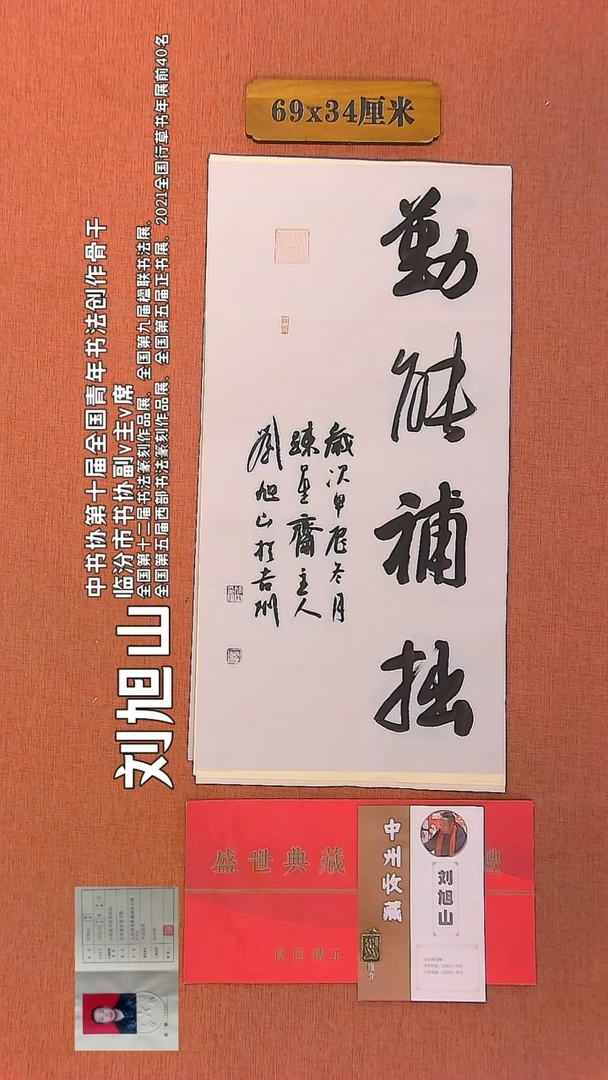 69x34厘米
勤能补拙
岁次甲辰冬月
主人
刘旭山于吉州
中书协第十届全国青年书法创作骨干
临汾市书协副v主v席
全国第十二届书法篆刻作品展、全国第九届楹联书法展、
全国第五届西部书法篆刻作品展、全国第五届正书展、2021全国行草书年展前40名
刘旭山
盛世典藏
良匠精工
中州收藏
推介
刘旭山